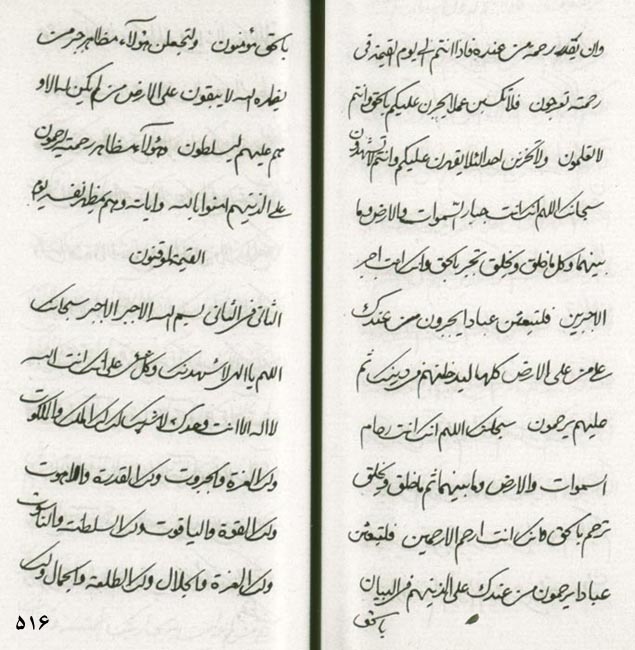 وان يظهر رحمة من عنده فاذا انتم الى يوم القيمة فى
رحمته توجرون فلا تكسبن عملا يحزن عليكم بالحق وانتم
لا تعلمون ولا تحزنن احد لئلا يقهرن عليكم وانتم لا تشهدون
سبحانك اللهم انك انت جبار السموات والارض وما
بينهما وكل ما خلق ويخلق تجبر بالحق وانك انت اجبر
الاجبرين فلتبعثن عبادا يجبرون من عندك
على من على الارض كلها ليدخلنهم فى دينك ثم
عليهم يرحمون سبحانك اللهم انك انت رحام
السموات والارض وما بينهما ثم ما خلق ويخلق
ترحم بالحق وانك انت ارحم الارحمين فلتبعثن
عبادا يرحمون من عندك على الذينهم فى البيان
بالحق
بالحق مؤمنون ولتجعلن هؤلاء مظاهر جبر من
يظهره الله لا يبقون على الارض من لم يكن له الا و
هم عليهم ليسلطون وهؤلاء مظاهر رحمته يرحمون
على الذينهم امنوا بالله واياته وهم بمظهر نفسه يوم
القيمة لموقنون
الثانى فى الثانى بسم الله الاجبر الاجبر سبحانك
اللهم يا الهى لاشهدنك وكل شئ على انك انت الله
لا اله الا انت وحدك لا شريك لك لك الملك والملكوت
ولك العزة والجبروت ولك القدرة واللاهوت
ولك القوة والياقوت ولك السلطنة والناسوت
ولك العزة والجلال ولك الطلعة والجمال ولك
٥١٦